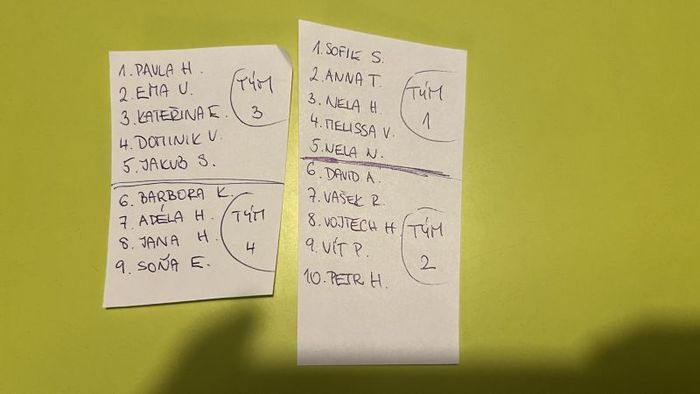 1. PAVLA H.
2. EMA V.
3. KATEŘINA E.
4. DOMINIK V.
5. JAKUB S.
TÝM
3
6. BARBORA K.
7. ADÉLA H.
8. JANA H.
9. SOŇA E.
TÝM
4
1. SOFIE S.
2. ANNA T.
3. NELA H.
4. MELISSA V.
5. NELA N.
TÝM
1
6. DAVID A.
7. VAŠEK R.
8. VOJTECH H
9. VÍT P.
10. PETR H.
TÝM
2